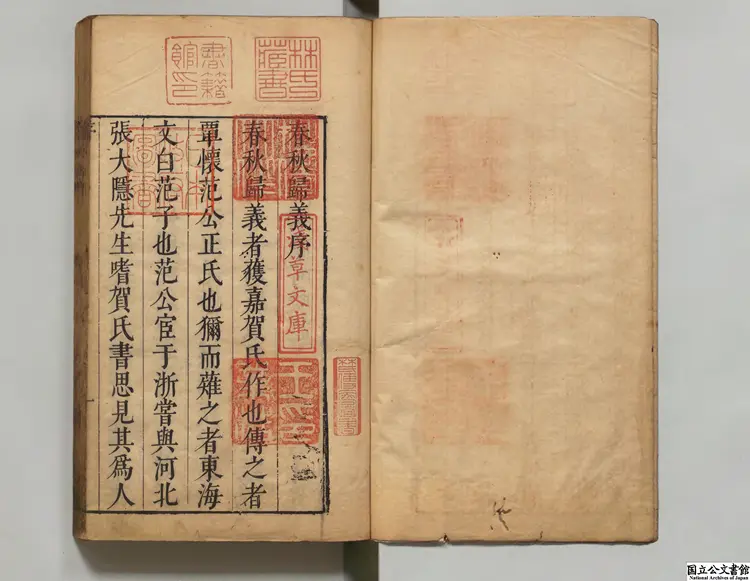 林氏藏書
書籍館印
春秋歸義序
春秋歸義者獲嘉賀氏作也傳之者
覃懷范公正氏也獮而薙之者東海
文白范子也范公宦于浙嘗與河北
張大隱先生嗜賀氏書思見其爲人
草文庫
国立公文書館
National Archives of Japan